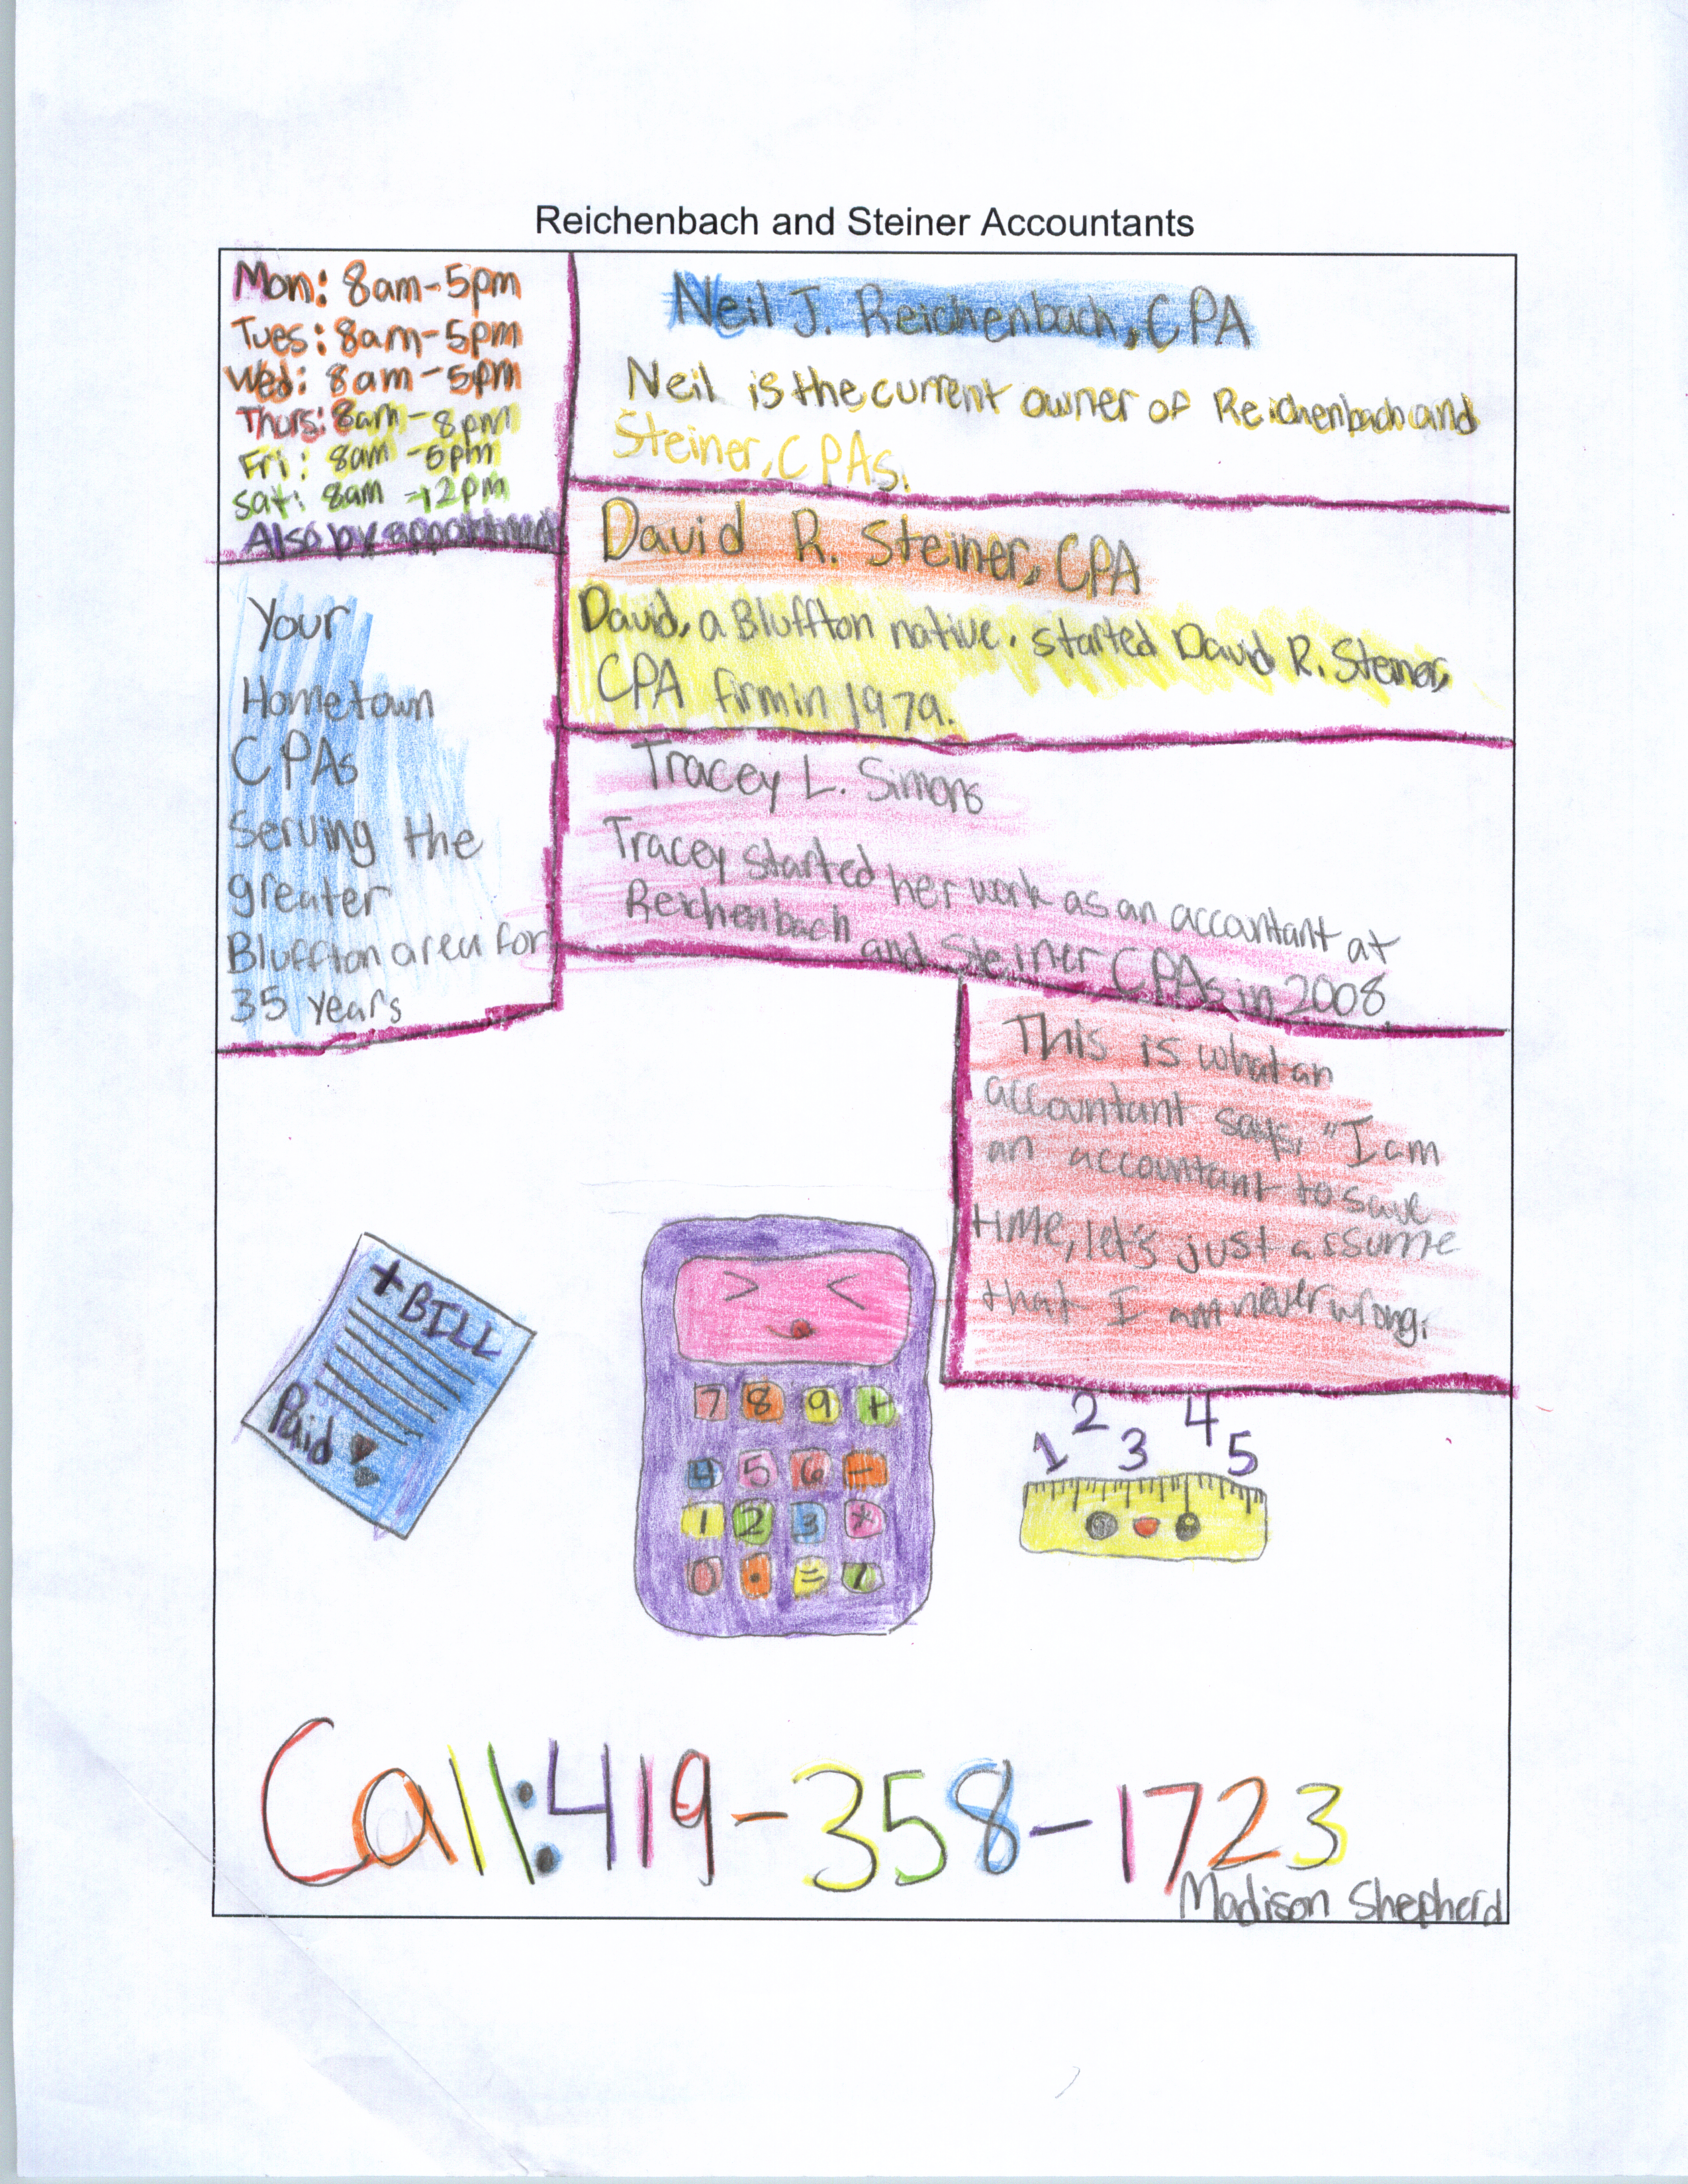 Reichenbach and Steiner Accountants
Mon: 8am-5pm
Tues: 8am-5pm
Wed: 8am-5pm
Thurs: 8am-8pm
Fri: 8am-5pm
Sat: 8am-12pm
Also by
Your
Hometown
CPAs
Serving the
greater
Bluffton area for
35 years
Neil J. Reichenbach, CPA
Neil is the current owner of Reichenbach and
Steiner, CPAs.
David R. Steiner, CPA
David, a Bluffton native, started David R. Steiner,
CPA firm in 1979.
Tracey L. Simons
Tracey started her work as an accountant at
Reichenbach and Steiner CPAs in 2008
This is what an
accountant says, "I am
an accountant to save
time, let's just assume
that I am never wrong.
+BILL
Paid
7 8 9 +
4 5 6 -
1 2 3 *
0 . = /
1 2 3 4 5
Call: 419-358-1723
Madison Shepherd